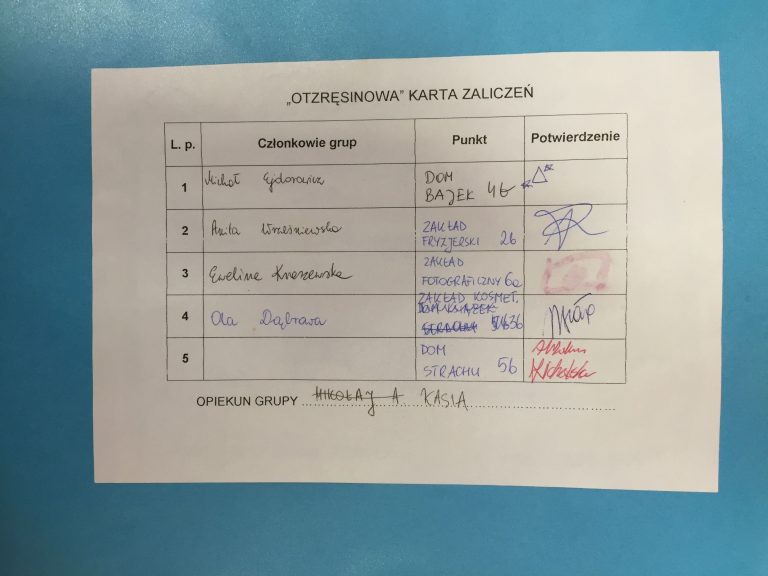 „OTZRĘSINOWA” KARTA ZALICZEŃ
L. p. Członkowie grup Punkt Potwierdzenie
1 Michał Ejdorowicz DOM
BAJEK 4b
2 Anita Wrześniewska ZAKŁAD
FRYZJERSKI 2b
3 Ewelina Kraszewska ZAKŁAD
FOTOGRAFICZNY 6a
4 Ola Dąbrawa ZAKŁAD KOSMET.
3b
5 DOM
STRACHU 5b
OPIEKUN GRUPY MIKOŁAJ A KASIA